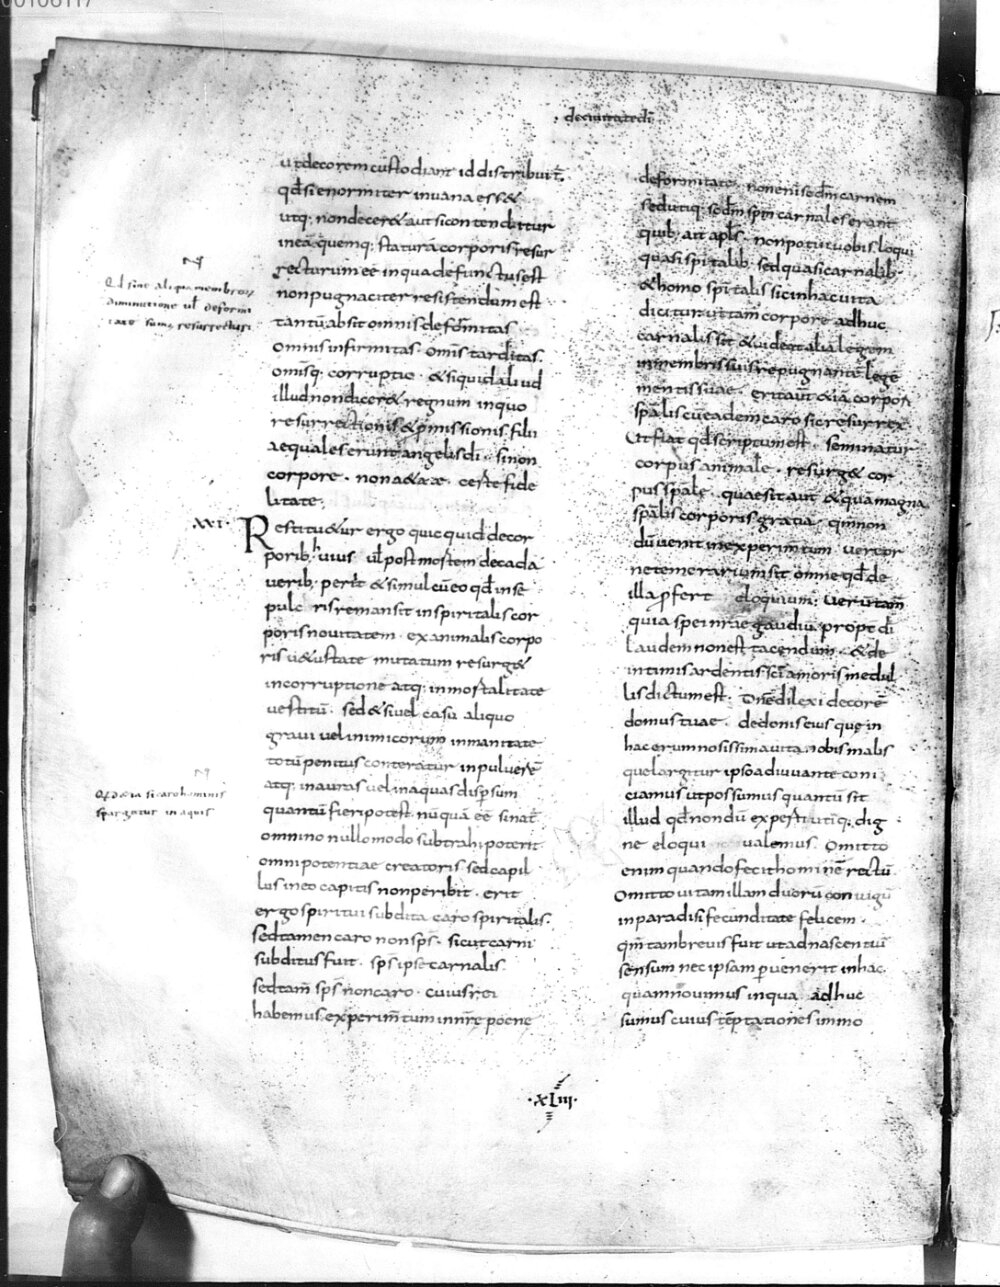 de ciuitate di
ut decorem custodiant id distribuit
qd si enormiter in una ess&
utq: non decer& aut si contenditur
in ea quemq: statura corporis resur
recturum ee in qua defunctus est
non pugnaciter resistendum est
tantu absit omnis deformitas
omnis infirmitas. omis tarditas
omisq: corruptio. & siquid aliud
illud non dicer& regnum in quo
resurrectionis & pmissionis filii
aequales erunt angelis di. si non
corpore. non a&a&e. certe fide
litate.
Qd sine aliqua membroru
diminutione ul deformi
tate sum resurrecturi
xxi. Restitu&ur ergo quicquid de cor
porib: uiuis ul post mortem de cada
uerib: periit & simul cu eo qd in se
pulc ris remansit in spiritalis cor
poris nouitatem. ex animalis corpo
ris u&ustate mutatum resurg&
incorruptione atq: inmortalitate
uestitu. sed & si uel casu aliquo
graui uel inimicorum inmanitate
totu penitus conteratur in puluere
atq: in auras uel in aquas dispersum
quantu fieri potest. nuqua ee sinat
omnino nullo modo subtrahi poterit
omnipotentiae creatoris sed capil
lus in eo capitis non peribit. erit
ergo spiritui subdita caro spiritalis.
sed tamen caro non sps. sicut carni
subditus fuit. sps ipse carnalis.
sed tam sps non caro. cuius rei
habemus experimtum in nre poene
sicaro hominis
spargatur in aquis
deformitate. non eni sedm carnem
sed utiq: sedm spm carnales erant
quib: ait apls. non potui uobis loqui
quasi spitalib: sed quasi carnalib:
& homo spitalis sic in hac uita
dicitur ut tam corpore adhuc
carnalis sit & uideat alia legem
in membris suis repugnante lege
mentis suae. erit aut & ia corpore
spalis cu eadem caro sic resurrex
ut fiat qd scriptum est. seminatur
corpus animale. resurg& cor
pus spale. quae sit aut & quam magna
spalis corporis gratia. qm non
du uenit in experimtum. uereor
ne temerarium sit omne qd de
illa pfert eloquium. ueruntam
quia spei nrae gaudiu propt di
laudem non est tacendum. & de
intimis ardentis sci amoris medul
lis dictum est. Dne dilexi decore
domus tuae. de donis eius que in
hac erumnosissima uita nobis malis
que largitur ipso adiuuante coni
ciamus ut possumus quantu sit
illud qd nondu experti utiq: dig
ne eloqui ualemus. Omitto
enim quando fecit homine rectu.
Omitto uitam illam duoru coniugu
in paradisi fecunditate felicem.
qm tam breuis fuit ut ad nascentiu
sensum nec ipsam puenerit in hac
quam nouimus in qua adhuc
sumus cuius teptationes immo
.xLiii.